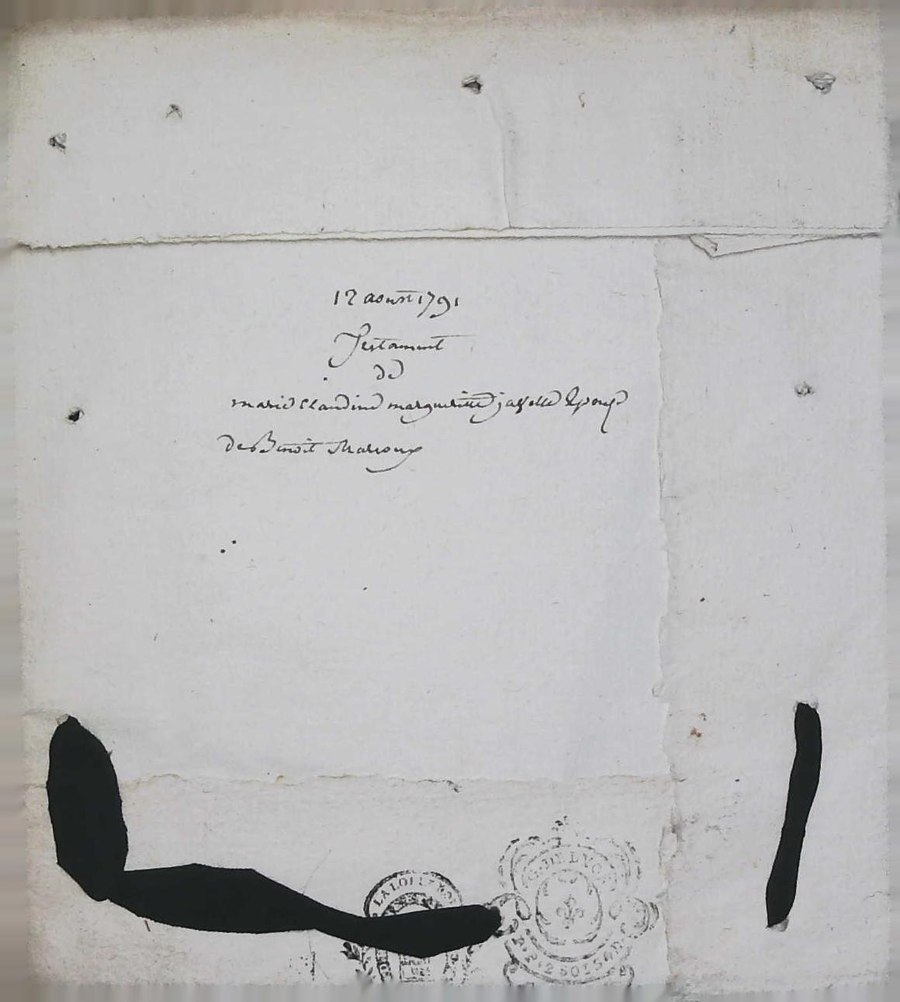 12 aoust 1791
Testament
de
marie Claudine margueritte jayelle Epouse
de Benoit Marroux
LA LOI
G. DE LYON
2 SOLS